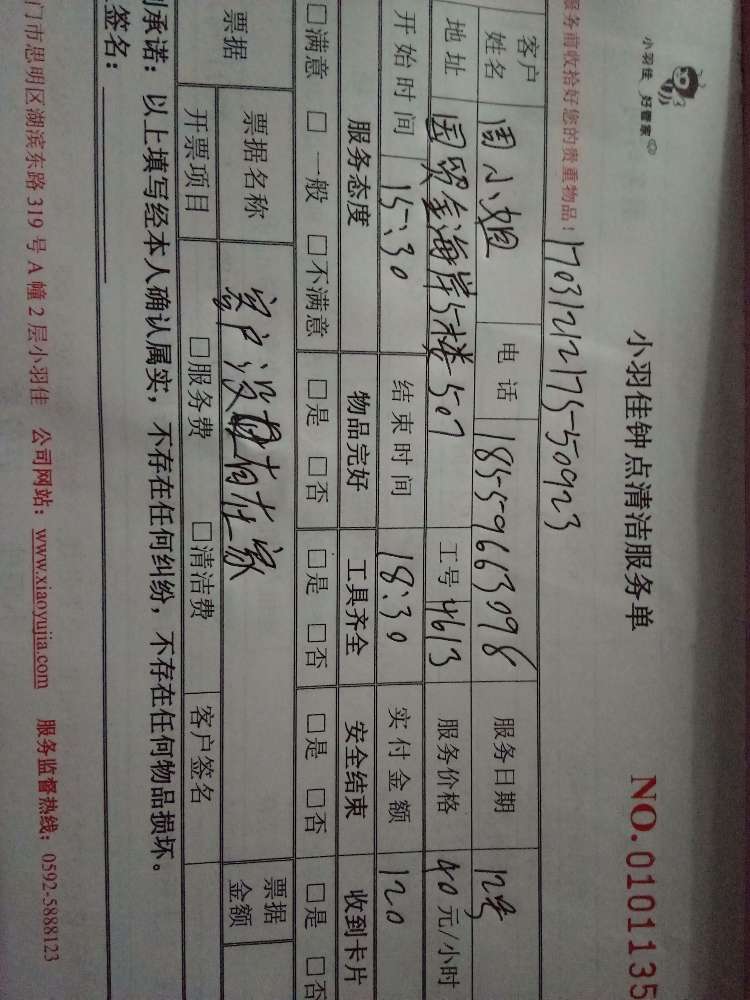 小羽佳 好管家
小羽佳钟点清洁服务单 NO.0101135
服务前收拾好您的贵重物品! 170312175-50923
客户姓名 周小姐 电话 18559663098 服务日期 12号
地址 国贸金海岸5楼507 工号 4613 服务价格 40元/小时
开始时间 15:30 结束时间 18:30 实付金额 120
服务态度 物品完好 工具齐全 安全结束 收到卡片
□满意 □一般 □不满意 □是 □否 □是 □否 □是 □否 □是 □否
票据 票据名称 客户没有在家 票据金额
开票项目 □服务费 □清洁费 客户签名
承诺：以上填写经本人确认属实，不存在任何纠纷，不存在任何物品损坏。
签名：
门市思明区湖滨东路319号A幢2层小羽佳 公司网站：www.xiaoyujia.com 服务监督热线：0592-5888123